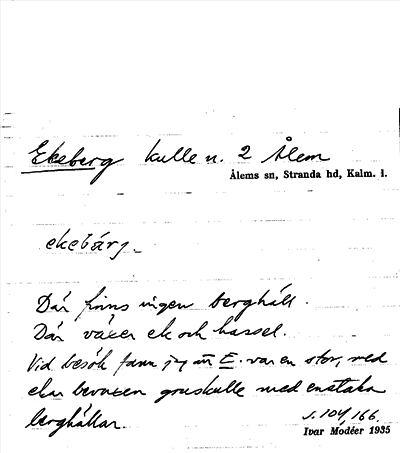 Ekeberg kulle n. 2 Ålem
Ålems sn, Stranda hd, Kalm. l.
ekebárj_
Där finns ingen berghäll.
Där växer ek och hassel.
Vid besök fann jag att E. var en stor, med
ekar bevuxen gruskulle med enstaka
berghällar.
s. 104, 166.
Ivar Modéer 1935